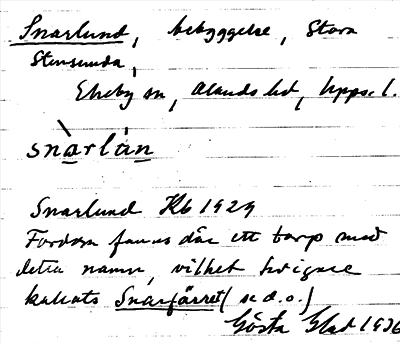 Snarlund, bebyggelse, Stora
Stensunda,
Ekeby sn, Olands hd, Upps. l.
snarlan
Snarlund Kb 1929
Fordom fanns där ett torp med
detta namn, vilket tidigare
kallats Snarfärret (se d.o.)
Gösta Glad 1936